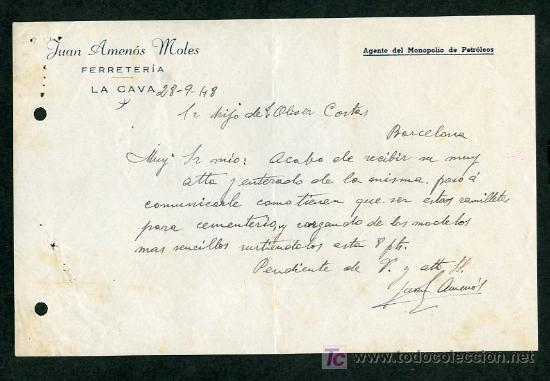 Juan Amenós Moles
Agente del Monopolio de Petróleos
FERRETERÍA
LA CAVA 28-9-48
Sr Hijo de E Oliver Costas
Barcelona
Muy Sr mio: Acabo de recibir su muy
atta y enterado de la misma, paso á
comunicarle como tienen que ser estos ramilletes
para cementerio, y cargando de los modelos
mas sencillos surtiendolos asta 8 pts.
Pendiente de V. y att S.
Juan Amenós
TC todocoleccion
www.todocoleccion.net